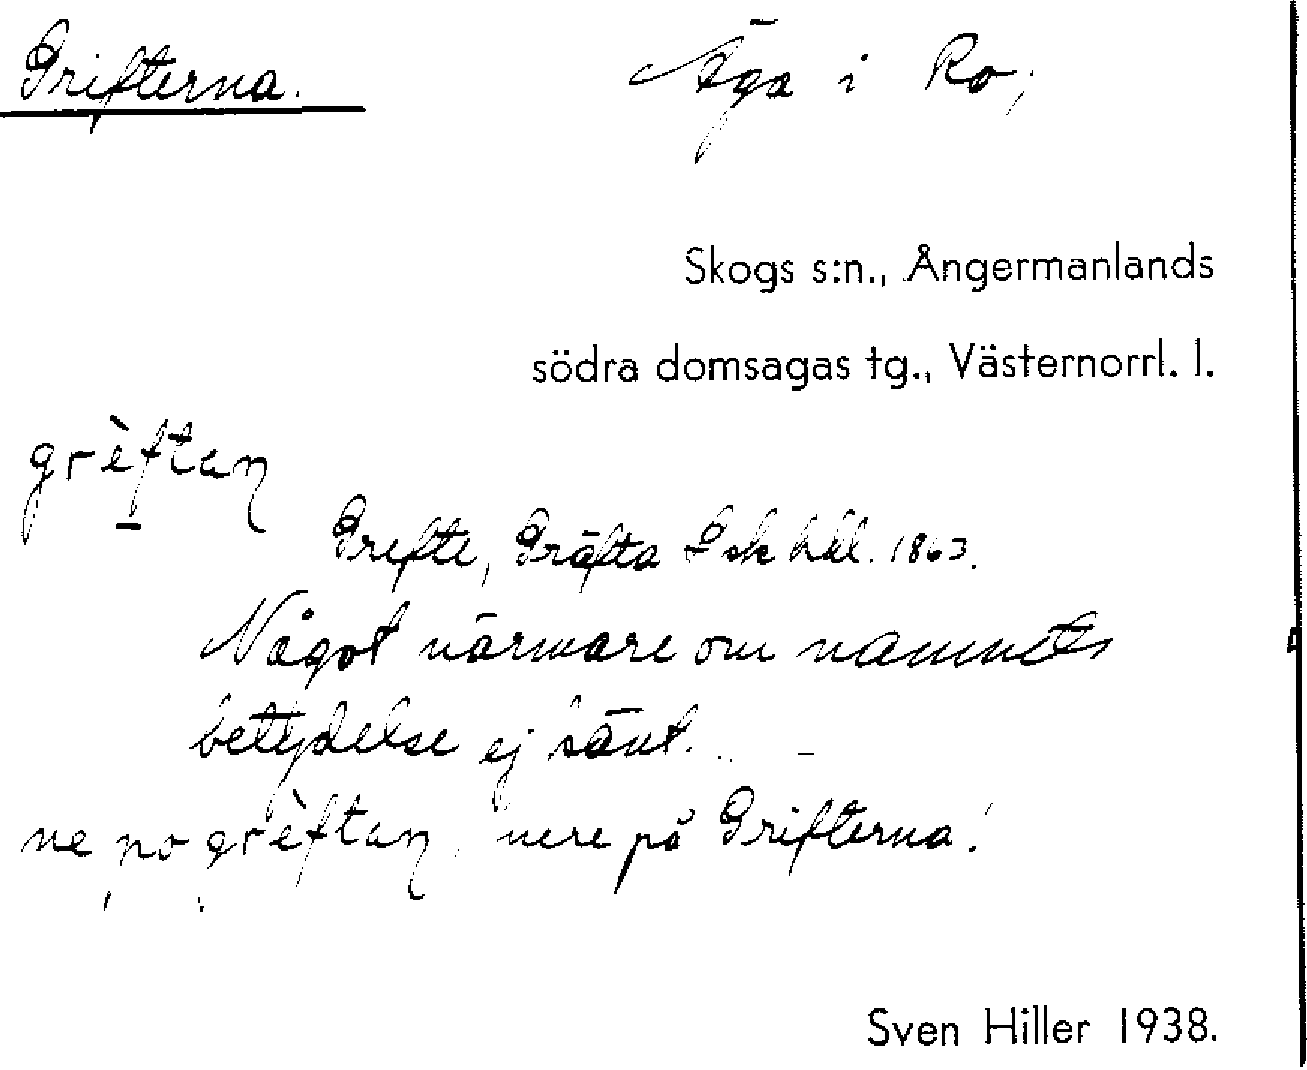 Grifterna. Äga i Ro,
Skogs s:n., Ångermanlands
södra domsagas tg., Västernorrl. l.
grèftaɳ
Grefte, Gräfta Lsk hdl. 1863.
Något närmare om namnets
betydelse ej känt.
ne po grèftaɳ, nere på Grifterna!
Sven Hiller 1938.